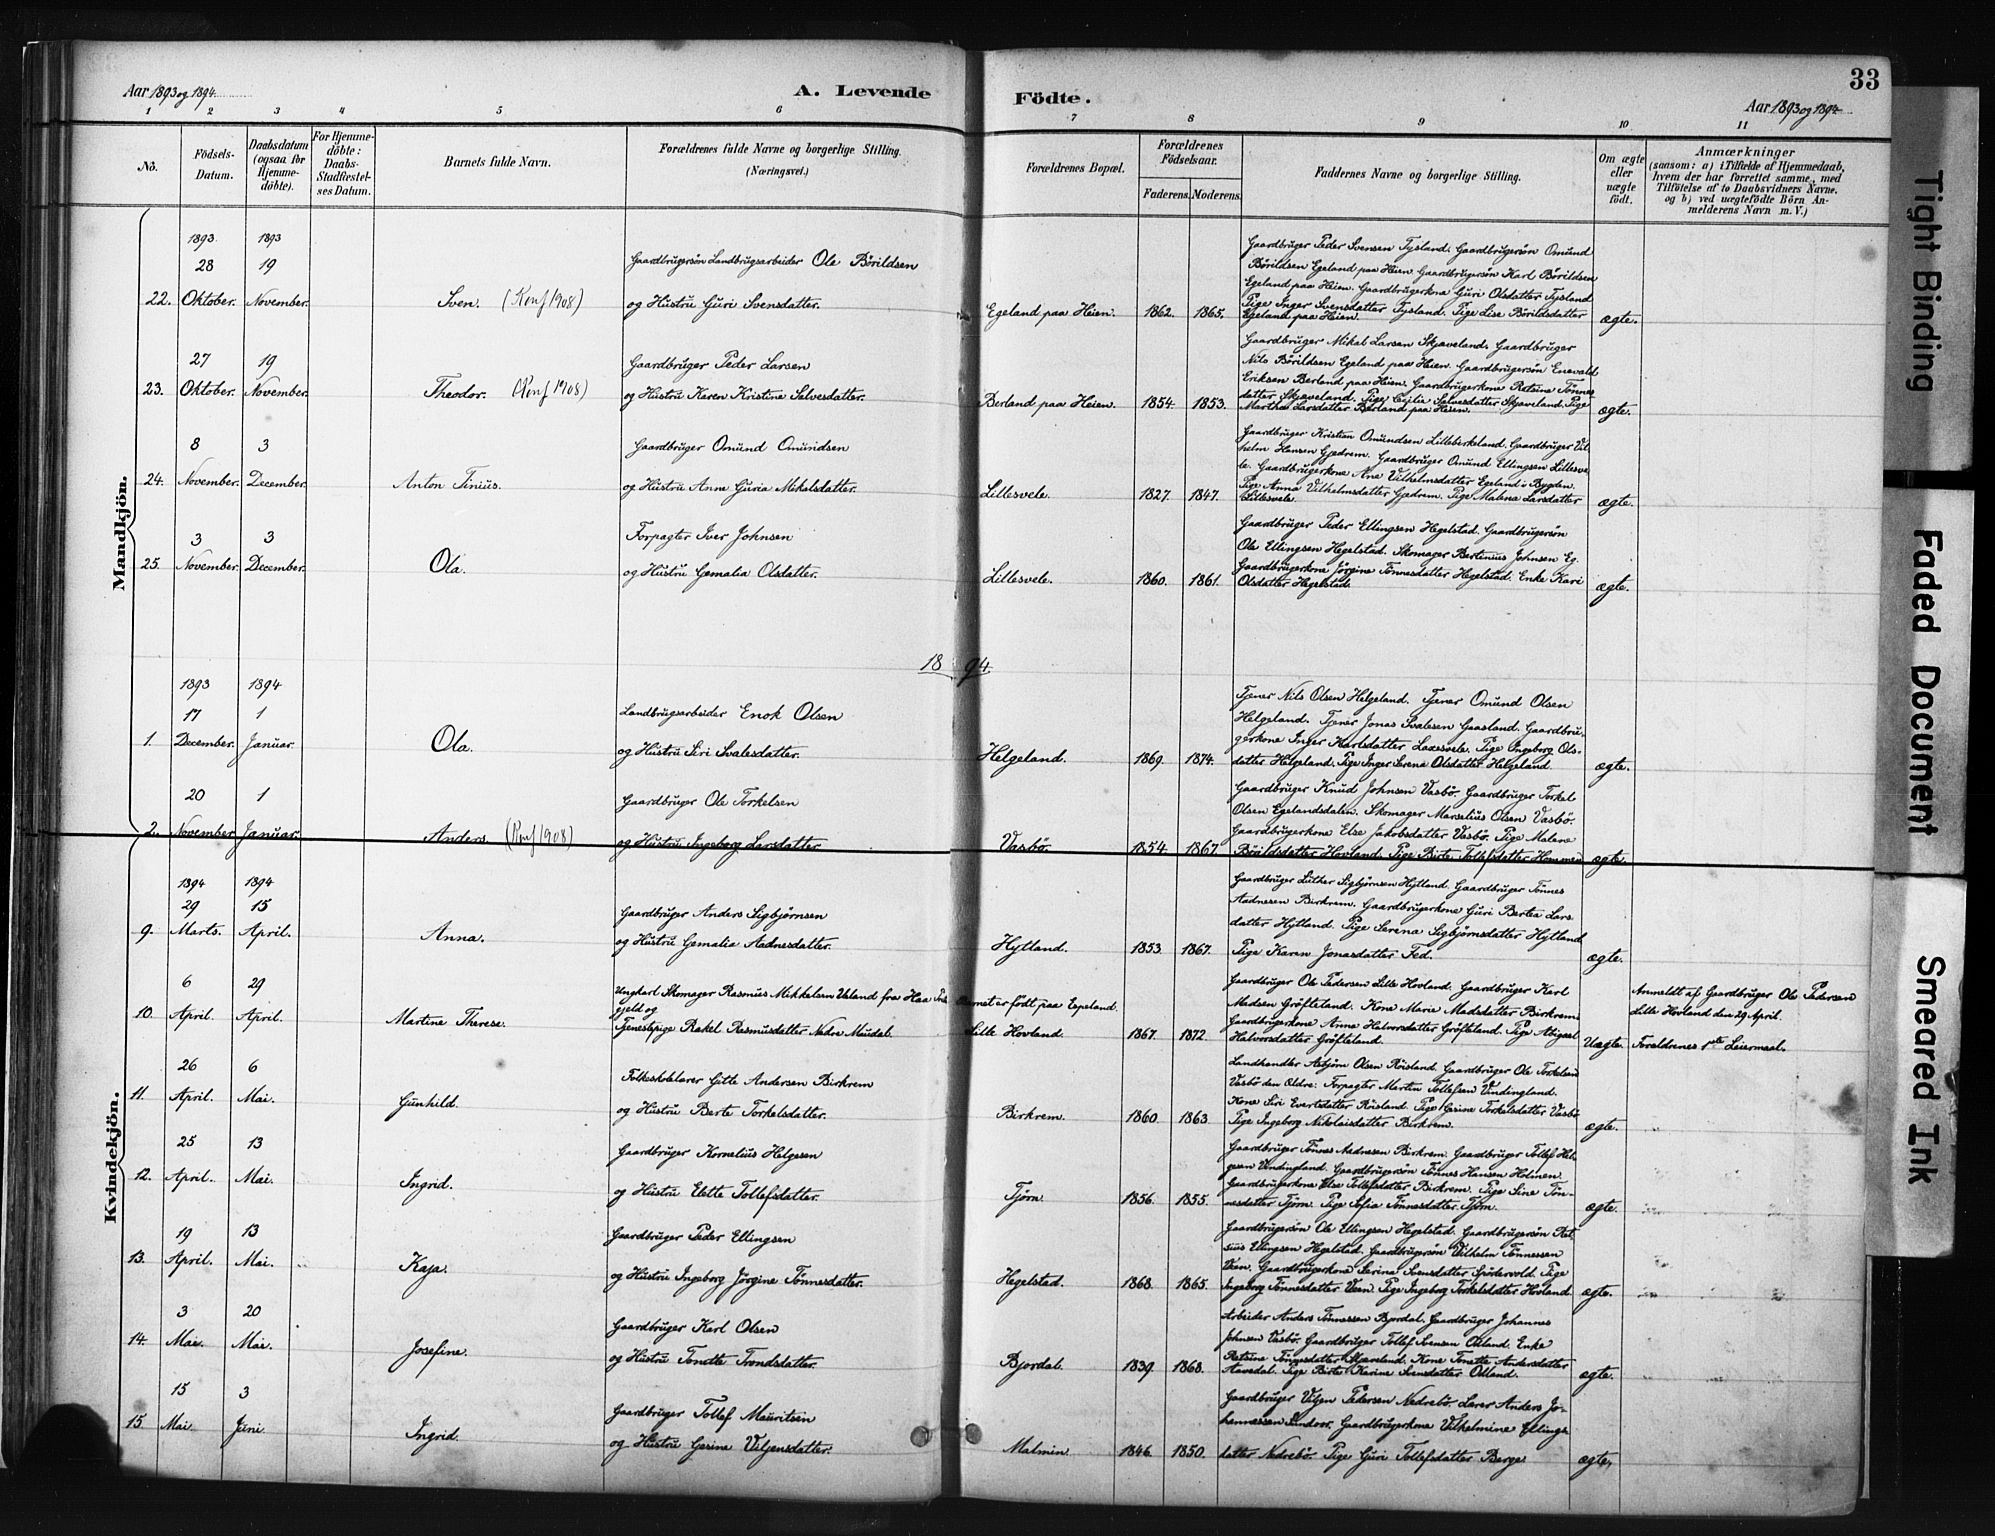 Aar 1893 og 1894.
A. Levende
1 2 3 4 5 6
No.
Födsels-Datum.
Daabsdatum (ogsaa for Hjemme-döbte).
For Hjemme-döbte: Daabs-Stadfæstel-ses Datum.
Barnets fulde Navn.
Forældrenes fulde Navne og borgerlige Stilling.
(Næringsvei.)
Födte.
33
Aar 1893 og 1894
7 8 9 10 11
Forældrenes Bopæl.
Forældrenes Födselsaar.
Faderens. Moderens.
Faddernes Navne og borgerlige Stilling.
Om ægte eller uægte födt.
Anmærkninger
(saasom: a) i Tilfælde af Hjemmedaab,
hvem der har forrettet samme, med
Tilföielse af to Daabsvidners Navne,
og b) ved uægtefödte Börn An-
melderens Navn m. V.)
Mandkjön.
1893 1893
28 19 Gaardbrugersøn Landbrugsarbeider Ole Börildsen
22. Oktober. November. Sven. (Konf 1908) og Hustru Guri Svensdatter. Egeland paa Heien. 1862. 1865. ægte.
Gaardbruger Peder Svensen Tysland. Gaardbrugersøn Omund
Börildsen Egeland paa Heien. Gaardbrugersøn Karl Börildsen
Egeland paa Heien. Gaardbrugerkone Guri Olsdatter Tysland
Pige Inger Svensdatter Tysland. Pige Lise Börildsdatter
Egeland paa Heien.
27 19 Gaardbruger Peder Larsen
23. Oktober. November. Theodor. (Konf 1908) og Hustru Karen Kristine Salvesdatter. Berland paa Heien. 1854. 1853. ægte.
Gaardbruger Mikal Larsen Skjaveland. Gaardbruger
Nils Börildsen Egeland paa Heien. Gaardbrugersøn Enevald
Eriksen Berland paa Heien. Gaardbrugerkone Retsine Tønnes
datter Skjaveland. Pige Cecilia Salvesdatter Skjaveland. Pige
Martha Larsdatter Berland paa Heien.
8 3 Gaardbruger Omund Omundsen
24. November. December. Anton Tinius. og Hustru Anne Guria Mikalsdatter. Lillesvele. 1827. 1847. ægte.
Gaardbruger Kristian Omundsen Lillebirkeland. Gaardbruger Vil-
helm Hansen Gjedrem. Gaardbruger Omund Ellingsen Lillesve
le. Gaardbrugerkone Ane Vilhelmsdatter Egeland i Bygden.
Pige Anna Vilhelmsdatter Gjedrem. Pige Malena Larsdatter
Lillesvele.
3 3 Forpagter Iver Johnsen
25. November. December. Ola. og Hustru Gemalia Olsdatter. Lillesvele. 1860. 1861. ægte.
Gaardbruger Peder Ellingsen Hegelstad. Gaardbrugersøn
Ole Ellingsen Hegelstad. Skomager Bertinius Johnsen Eg.
Gaardbrugerkone Jörgine Tønnesdatter Hegelstad. Enke Kari
Olsdatter Hegelstad.
1894.
1893 1894
17 1 Landbrugsarbeider Enok Olsen
1. December. Januar. Ola. og Hustru Siri Svalesdatter. Helgeland. 1869. 1874. ægte.
Tjener Nils Olsen Helgeland. Tjener Omund Olsen
Helgeland. Tjener Jonas Svalesen Gaasland. Gaardbru-
gerkone Inger Karlsdatter Laxesvele. Pige Ingeborg Ols-
datter Helgeland. Pige Inger Serena Olsdatter Helgeland.
20 1 Gaardbruger Ole Torkelsen
2. November Januar. Anders. (Konf 1908) og Hustru Ingeborg Larsdatter Vasbö. 1854. 1867 ægte
Gaardbruger Knud Johnsen Vasbö. Gaardbruger Torkel
Olsen Egelandsdalen. Skomager Marselius Olsen Vasbö.
Gaardbrugerkone Else Jakobsdatter Vasbö. Pige Malene
Börildsdatter Hovland. Pige Birte Tollefsdatter Hommen
Kvindekjön.
1894 1894
29 15 Gaardbruger Anders Sigbjørnsen
9. Marts. April. Anna. og Hustru Gemalia Aadnesdatter. Hytland. 1853 1867. ægte.
Gaardbruger Luther Sigbjørnsen Hytland. Gaardbruger Tønnes
Aadnesen Birkrem. Gaardbrugerkone Guri Bertea Lars
datter Hytland. Pige Serena Sigbjørnsdatter Hytland
Pige Karen Jonasdatter Fed.
6 29 Ungkarl Skomager Rasmus Mikkelsen Valand fra Haa Præ
gjeld og Barnet er født paa Egeland.
10. April. April. Martine Therese. Tjenestepige Rakel Rasmusdatter Nedre Maudal. Lille Hovland. 1867. 1872. Uægte.
Gaardbruger Ole Pedersen Lille Hovland. Gaardbruger Karl
Madsen Gröfteland. Kone Marie Madsdatter Birkrem.
Gaardbrugerkone Anna Halvorsdatter Gröfteland. Pige Abigael
Halvorsdatter Gröfteland.
Anmeldt af Gaardbruger Ole Pedersen
Lille Hovland den 29 April.
Forældrenes 1ste Leiermaal.
26 6 Folkeskolelærer Gitle Andersen Birkrem
11. April. Mai. Gunhild. og Hustru Berte Torkelsdatter. Birkrem. 1860 1863 ægte.
Landhandler Asbjørn Olsen Röisland. Gaardbruger Ole Torkelsen
Vasbö den Ældre. Forpagter Martin Tollefsen Vindingland.
Kone Siri Evertsdatter Röisland. Pige Gesine Torkelsdatter Vasbö
Pige Ingeborg Nikolaisdatter Birkrem.
25 13 Gaardbruger Kornelius Helgesen
12. April. Mai. Ingrid. og Hustru Elette Tollefsdatter. Tjörn. 1856. 1855. ægte.
Gaardbruger Tønnes Aadnesen Birkrem. Gaardbruger Tollef Hel-
gesen Vindingland. Gaardbrugersøn Tønnes Hansen Holmen.
Gaardbrugerkone Else Tollefsdatter Birkrem. Pige Sine Tøn-
nesdatter Tjörn. Pige Sofia Tønnesdatter Tjörn.
19 13 Gaardbruger Peder Ellingsen
13. April. Mai. Kaja. og Hustru Ingeborg Jörgine Tønnesdatter. Hegelstad. 1868. 1865. ægte.
Gaardbrugersøn Ole Ellingsen Hegelstad. Gaardbrugersøn Ret-
sius Ellingsen Hegelstad. Gaardbrugersøn Vilhelm Tønnessen
Veen. Gaardbrugerkone Serina Svensdatter Spödervold. Pige
Ingeborg Tønnesdatter Veen. Pige Ingeborg Torkelsdatter Hovland
3 20 Gaardbruger Karl Olsen
14. Mai. Mai. Josefine. og Hustru Tonette Trondsdatter. Bjordal. 1839. 1868. ægte.
Arbeider Anders Tønnessen Bjordal. Gaardbruger Johannes
Johnsen Vasbö. Gaardbruger Tollef Svensen Odland. Enke
Retsine Tønnesdatter Skjaveland. Kone Tonette Andersdatter
Aavedal. Pige Birte Karine Svensdatter Odland.
15 3 Gaardbruger Tollef Mauritsen
15 Mai. Juni. Ingrid. og Hustru Gesine Veljensdatter. Malmin. 1846. 1850. ægte.
Gaardbruger Viljen Pedersen Nedrebö. Lærer Anders Jo-
hannessen Sundvor. Gaardbrugerkone Vilhelmine Ellings
datter Nedrebö. Pige Guri Tollefsdatter Berge.
Tight Binding
Faded Document
Smeared Ink